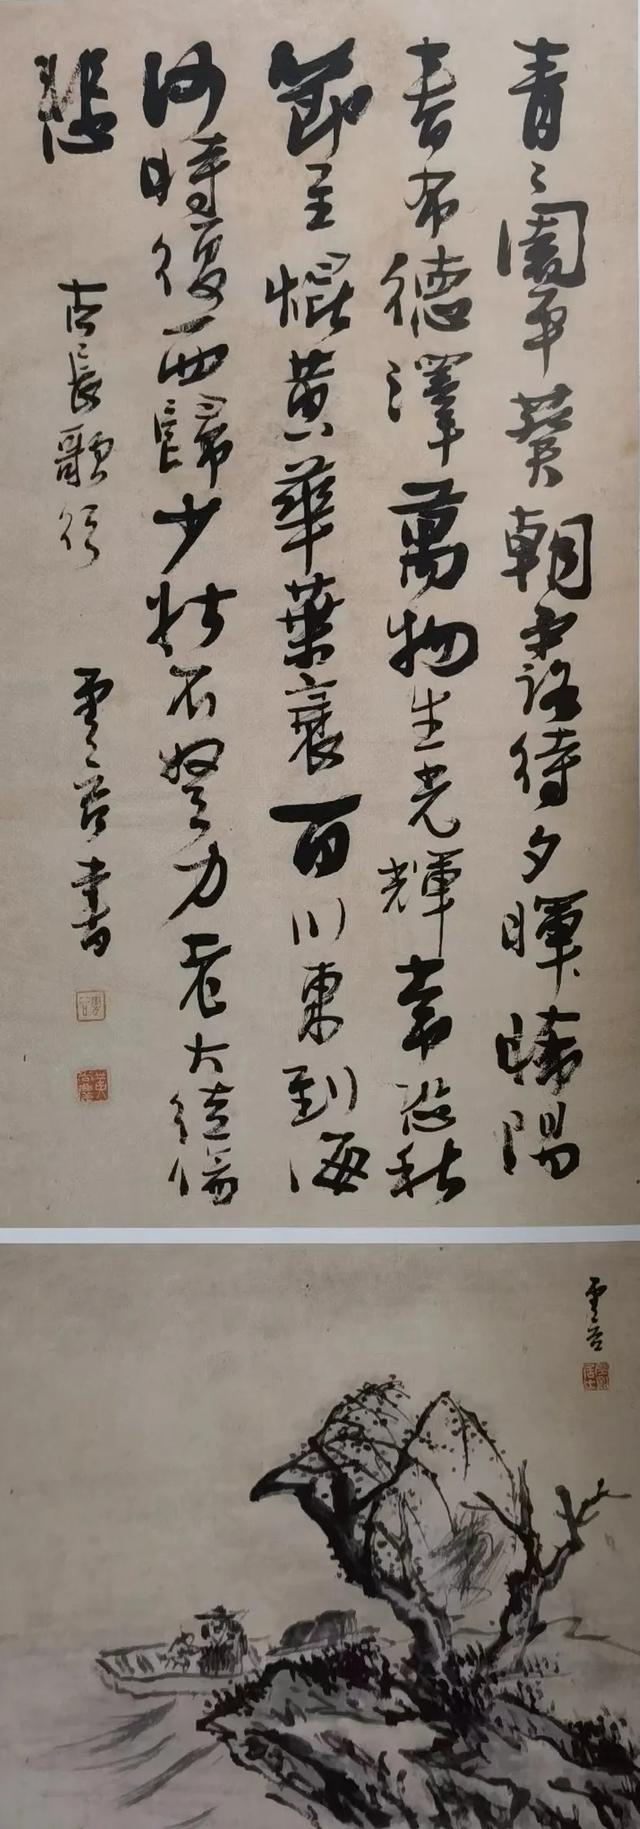 青〻園中葵朝露待夕暉晞陽
春布德澤萬物生光輝常恐秋
節至焜黃華葉衰百川東到海
何時復西歸少壯不努力老大徒傷
悲
古長歌行
雲谷書
雲谷